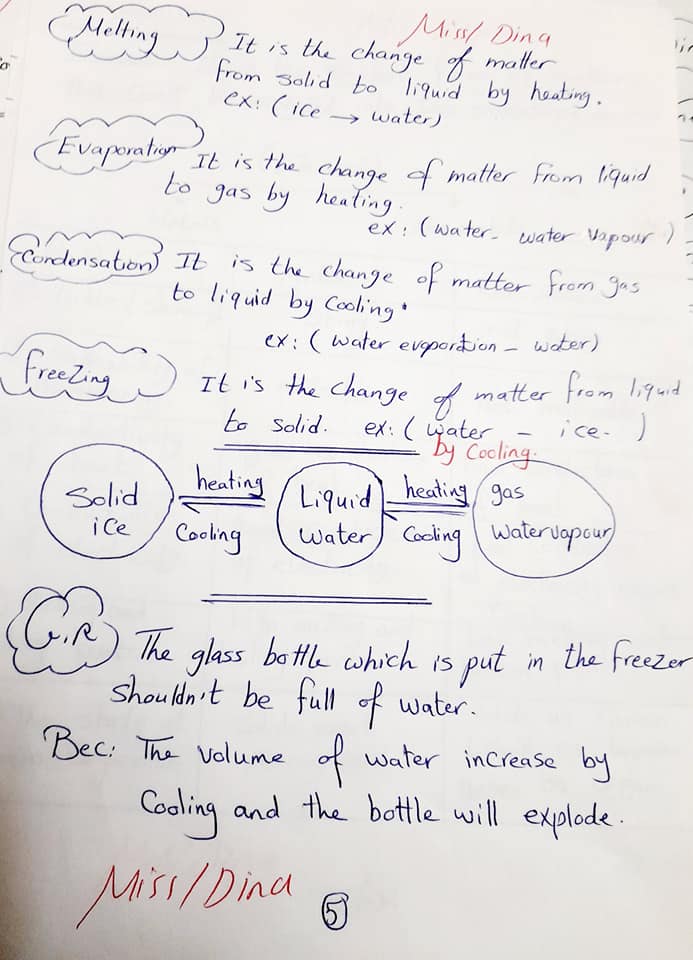 Miss/ Dina
Melting It is the change of matter
from solid to liquid by heating.
ex: (ice → water)
Evaporation It is the change of matter from liquid
to gas by heating.
ex: (water - water vapour)
Condensation It is the change of matter from gas
to liquid by Cooling.
ex: (water evaportion - water)
FreeZing It is the change of matter from liquid
to solid. ex: (water - ice.)
by Cooling.
heating heating
Solid Liquid gas
ice water Water vapour
Cooling Cooling
G.R The glass bottle which is put in the freezer
shouldn't be full of water.
Bec: The volume of water increase by
Cooling and the bottle will explode.
Miss/Dina
5